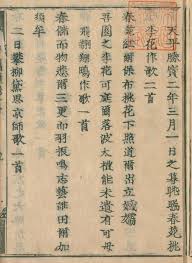 天平勝寶二年三月一日之暮眺矚春苑桃
李花作歌二首
春苑紅爾保布桃花下照道爾出立嬬
吾園之李花可庭爾落波太禮能未遺有可母
飛翻翔鴫作歌一首
春儲而物悲爾三更而羽振鳴志藝誰田爾加
須牟
二日攀柳黛思京師歌一首